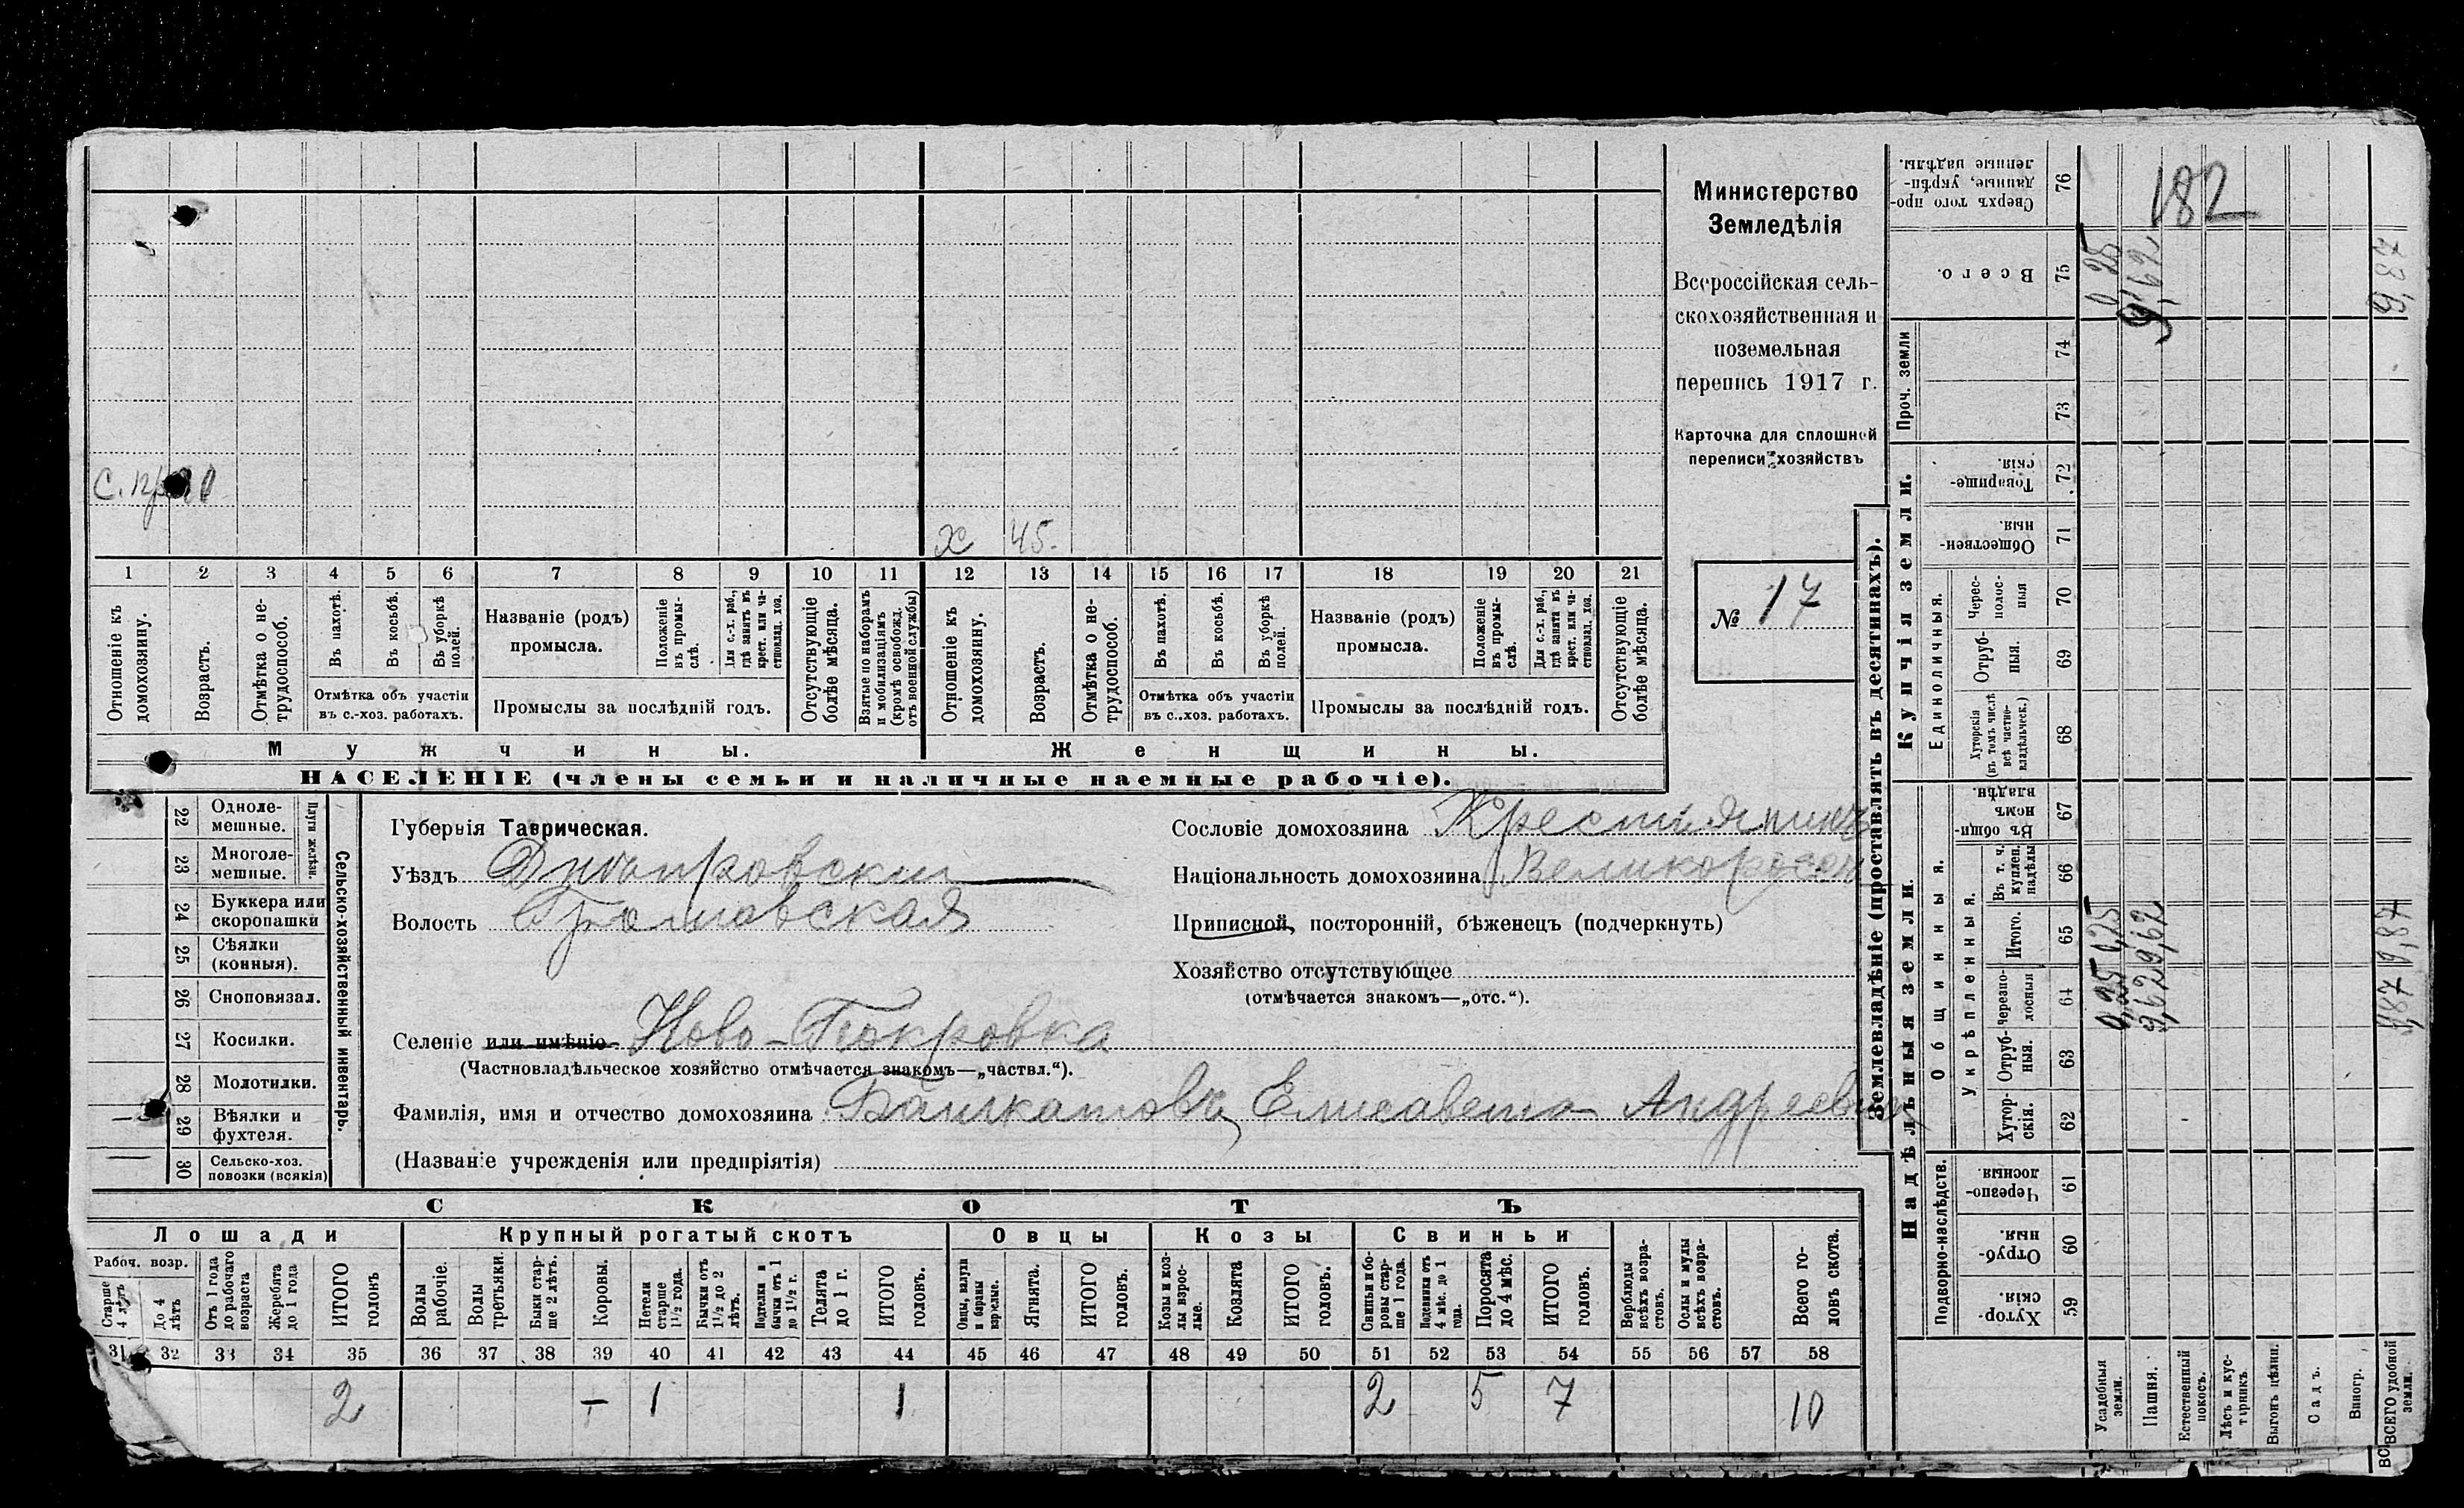 С. пр 20
х 45.
1 2 3 4 5 6 7 8 9 10 11 12 13 14 15 16 17 18 19 20 21
Отношеніе къ домохозяину.
Возрастъ.
Отмѣтка о не-трудоспособ.
Въ пахотѣ.
Въ косьбѣ.
Въ уборкѣ полей.
Отмѣтка объ участіи
въ с.-хоз. работахъ.
Названіе (родъ)
промысла.
Положеніе въ промы-слѣ.
Для с.-х. раб., гдѣ занятъ въ крест. или ча-стновлад. хоз.
Промыслы за послѣдній годъ.
Отсутствующіе болѣе мѣсяца.
Взятые по наборамъ и мобилизаціямъ (кромѣ освобожд. отъ военной службы)
Отношеніе къ домохозяину.
Возрастъ.
Отмѣтка о не-трудоспособ.
Въ пахотѣ.
Въ косьбѣ.
Въ уборкѣ полей.
Отмѣтка объ участіи
въ с.-хоз. работахъ.
Названіе (родъ)
промысла.
Положеніе въ промы-слѣ.
Для с.-х. раб., гдѣ занята въ крест. или ча-стновлад. хоз.
Промыслы за послѣдній годъ.
Отсутствующіе болѣе мѣсяца.
Мужчины.
Женщины.
НАСЕЛЕНІЕ (члены семьи и наличные наемные рабочіе).
Министерство
Земледѣлія
Всероссійская сель-
скохозяйственная и
поземельная
перепись 1917 г.
Карточка для сплошной
переписи хозяйствъ
№ 17
Сельско-хозяйственный инвентарь.
Плуги желѣзн.
22 Одноле-мешные.
23 Многоле-мешные.
24 Буккера или скоропашки
25 Сѣялки (конныя).
26 Сноповязал.
27 Косилки.
28 Молотилки.
29 Вѣялки и фухтеля.
30 Сельско-хоз. повозки (всякія)
Губернія Таврическая.
Уѣздъ Днѣпровскій
Волость Громовская
Селеніе или имѣніе Ново-Покровка
(Частновладѣльческое хозяйство отмѣчается знакомъ—„частвл.“).
Фамилія, имя и отчество домохозяина Башкатовъ, Елисавета Андреевна
(Названіе учрежденія или предпріятія)
Сословіе домохозяина Крестьянинъ
Національность домохозяина Великороссъ
Приписной, посторонній, бѣженецъ (подчеркнуть)
Хозяйство отсутствующее
(отмѣчается знакомъ—„отс.“).
СКОТЪ
Лошади
Рабоч. возр.
Старше 4 лѣтъ
До 4 лѣтъ
Отъ 1 года до рабочаго возраста
Жеребята до 1 года
ИТОГО головъ
Крупный рогатый скотъ
Волы рабочіе.
Волы третьяки.
Быки стар-ше 2 лѣтъ.
Коровы.
Нетели старше 1½ года.
Бычки отъ 1½ до 2 лѣтъ.
Подтелки и бычки отъ 1 до 1½ г.
Телята до 1 г.
ИТОГО головъ.
Овцы
Овцы, валухи и бараны взрослые.
Ягнята.
ИТОГО головъ.
Козы
Козы и коз-лы взрос-лые.
Козлята
ИТОГО головъ.
Свиньи
Свиньи и бо-ровы стар-ше 1 года.
Подсвинки отъ 4 мѣс. до 1 года.
Поросята до 4 мѣс.
ИТОГО головъ.
Верблюды всѣхъ возра-стовъ.
Ослы и мулы всѣхъ возра-стовъ.
Всего го-ловъ скота.
31 32 33 34 35 36 37 38 39 40 41 42 43 44 45 46 47 48 49 50 51 52 53 54 55 56 57 58
2 – 1 1 2 5 7 10
Землевладѣніе (проставлять въ десятинахъ).
Сверхъ того про-данные, укрѣп-ленные надѣлы. 76
182
Всего. 75
0,25
9,62
9,87
Проч. земли
74
73
Купчія земли.
Товарище-скія. 72
Обществен-ныя. 71
Единоличныя.
Черес-полос-ныя 70
Отруб-ныя. 69
Хуторскія (въ томъ числѣ всѣ частно-владѣльческ.) 68
Надѣльныя земли.
Общинныя.
Въ общин-номъ владѣн. 67
Укрѣпленныя.
Въ т. ч. куплен. надѣлы 66
Итого. 65
0,25
9,62
9,87
Черезпо-лосныя 64
0,25
9,62
9,87
Отруб-ныя. 63
Хутор-скія. 62
Подворно-наслѣдств.
Черезпо-лосныя 61
Отруб-ныя 60
Хутор-скія. 59
Усадебныя земли.
Пашня.
Естественный покосъ.
Лѣсъ и кус-тарникъ.
Выгонъ цѣлин.
Садъ.
Виногр.
ВСЕГО удобной земли.